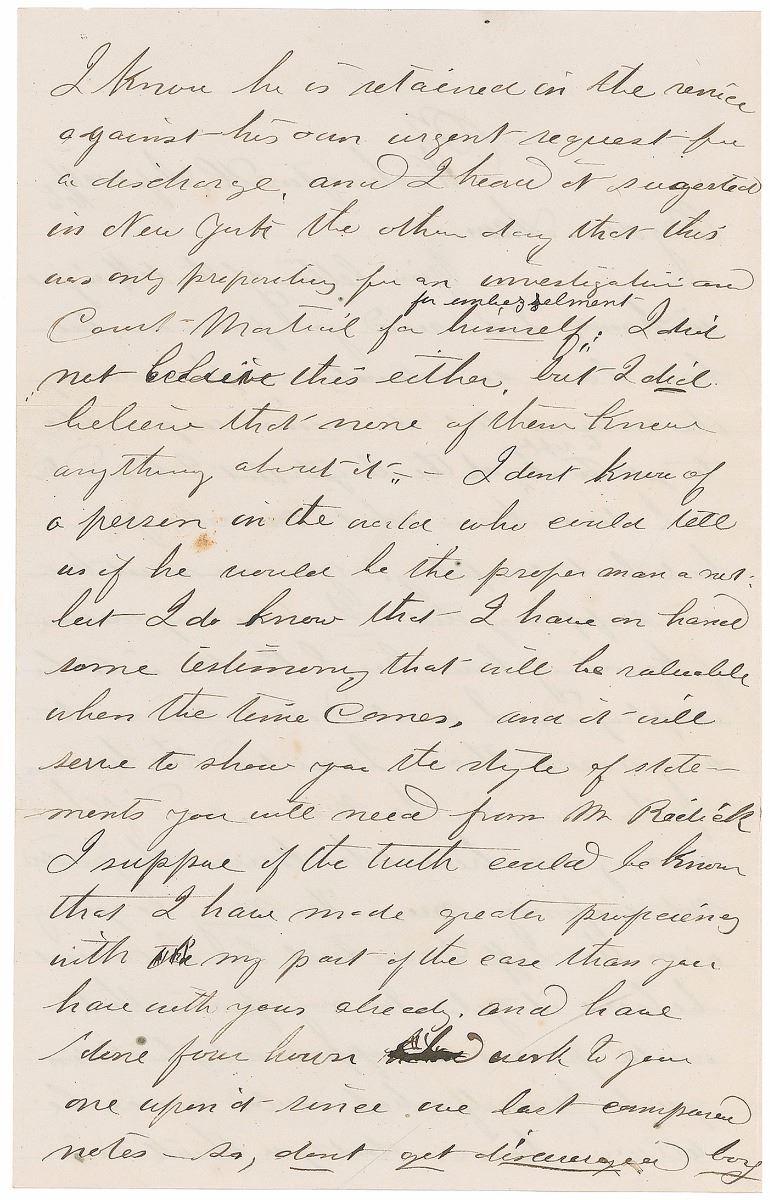 I know he is retained in the service
against his own urgent request for
a discharge, and I heard it sugested
in New York the other day that this
was only preparitory for an investigation and
for embezzelment
Court-Martial for himself; I did
not beleive this either, but I did
believe that none of them knew
anything about it – I dont know of
a person in the world who could tell
us if he would be the proper man or not:
but I do know that I have on hand
some testimony that will be valuable
when the time comes, and it will
serve to show you the style of state-
ments you will need from Mr
I suppose if the truth could be known
that I have made greater proficiency
with my part of the case than you
have with yours already. and have
done four hours work to your
one upon it since we last compared
notes – so, dont get discouraged boy